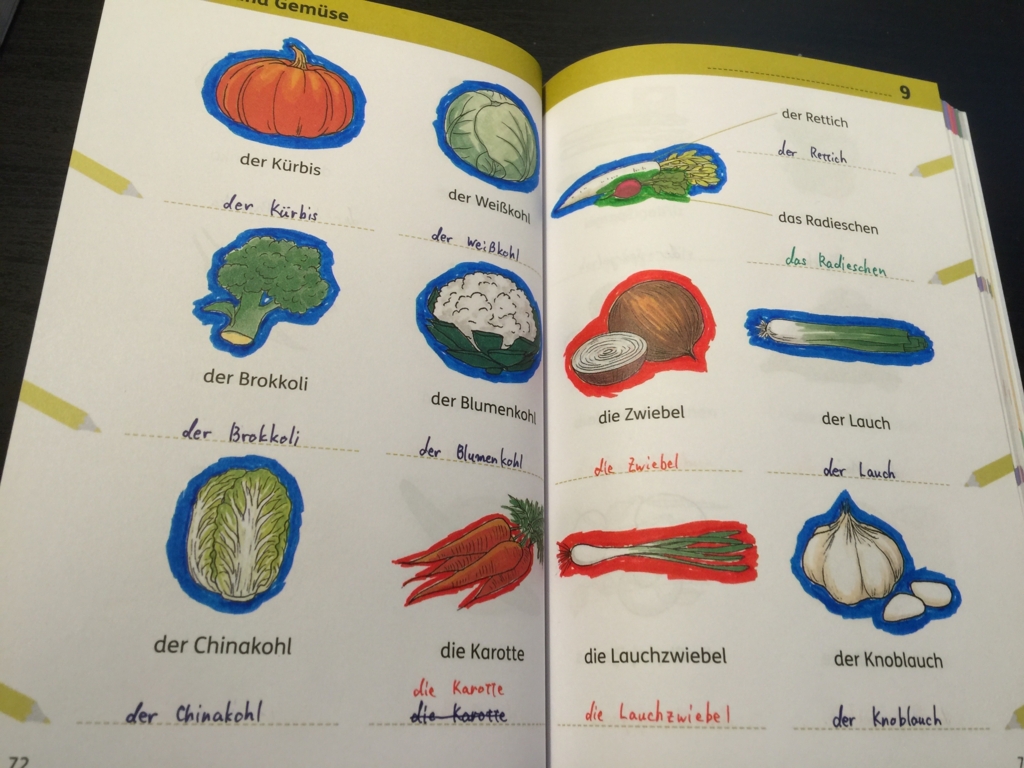 und Gemüse
der Kürbis
der Kürbis
der Weißkohl
der Weißkohl
der Brokkoli
der Brokkoli
der Blumenkohl
der Blumenkohl
der Chinakohl
der Chinakohl
die Karotte
die Karotte
die Karotte
72
9
der Rettich
der Rettich
das Radieschen
das Radieschen
die Zwiebel
die Zwiebel
der Lauch
der Lauch
die Lauchzwiebel
die Lauchzwiebel
der Knoblauch
der Knoblauch